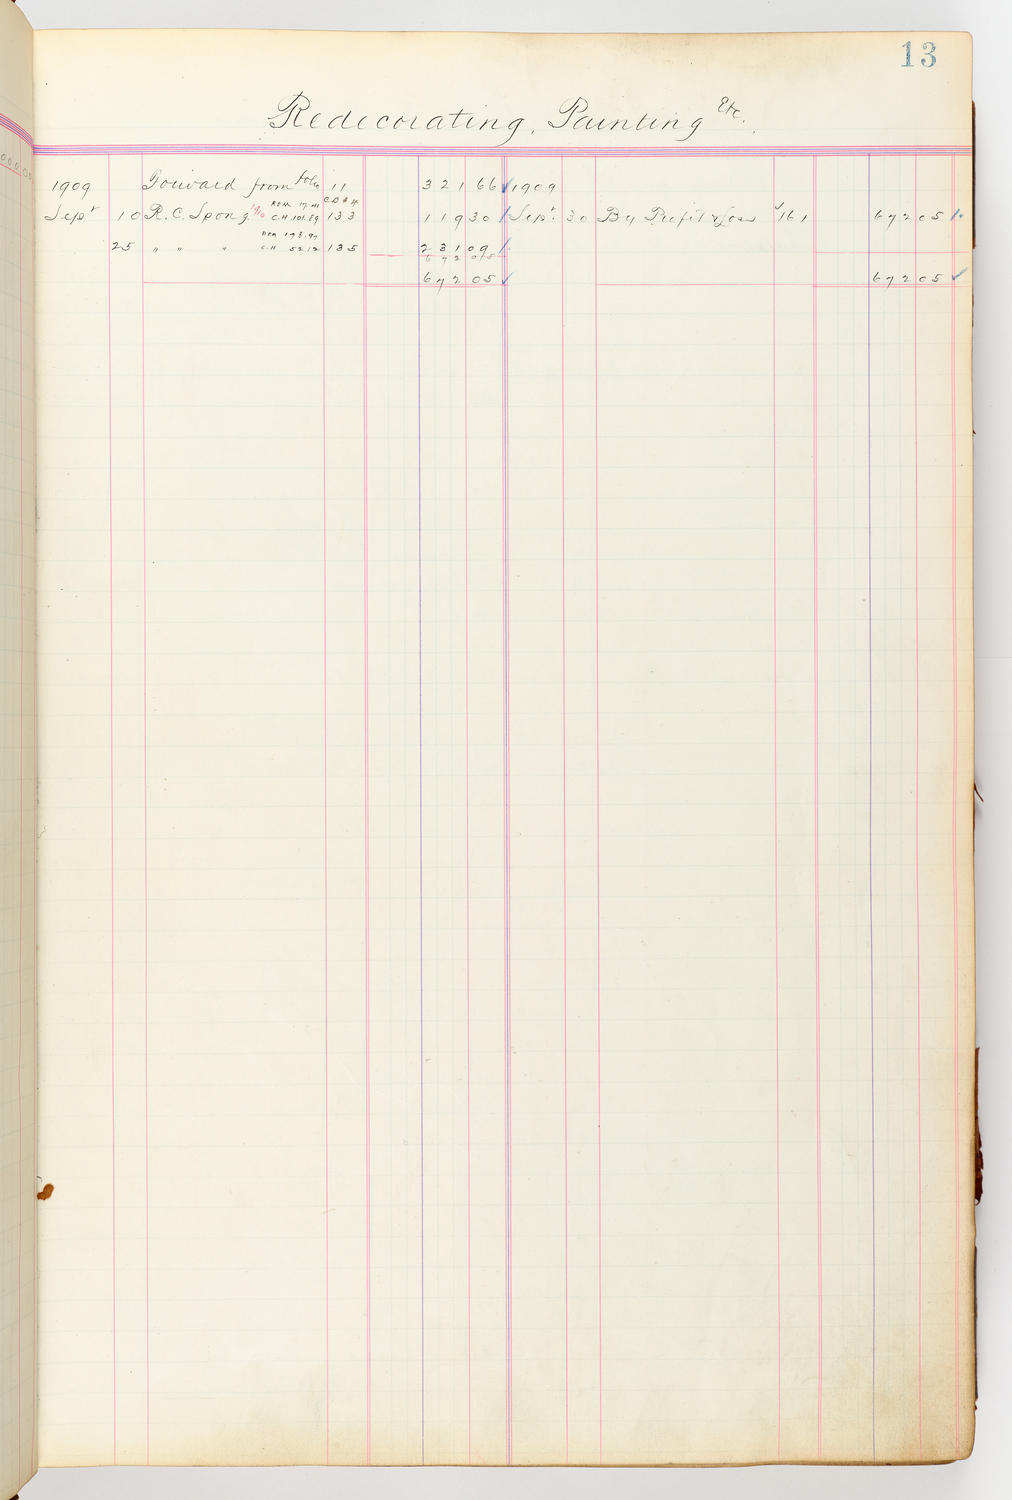 13
Redecorating, Painting Etc.
1909 Forward from folio 11 321 66 ✓ 1909
C.B. 4
Rom 17.41
Sept 10 R.C. Spong C.H. 101.89 133 119 30 Sept. 30 By Profit & Loss 161 672 05
Rom 178.97
25 " " " C.H 52.12 135 231 09
672 05
672 05 ✓ 672 05 ✓